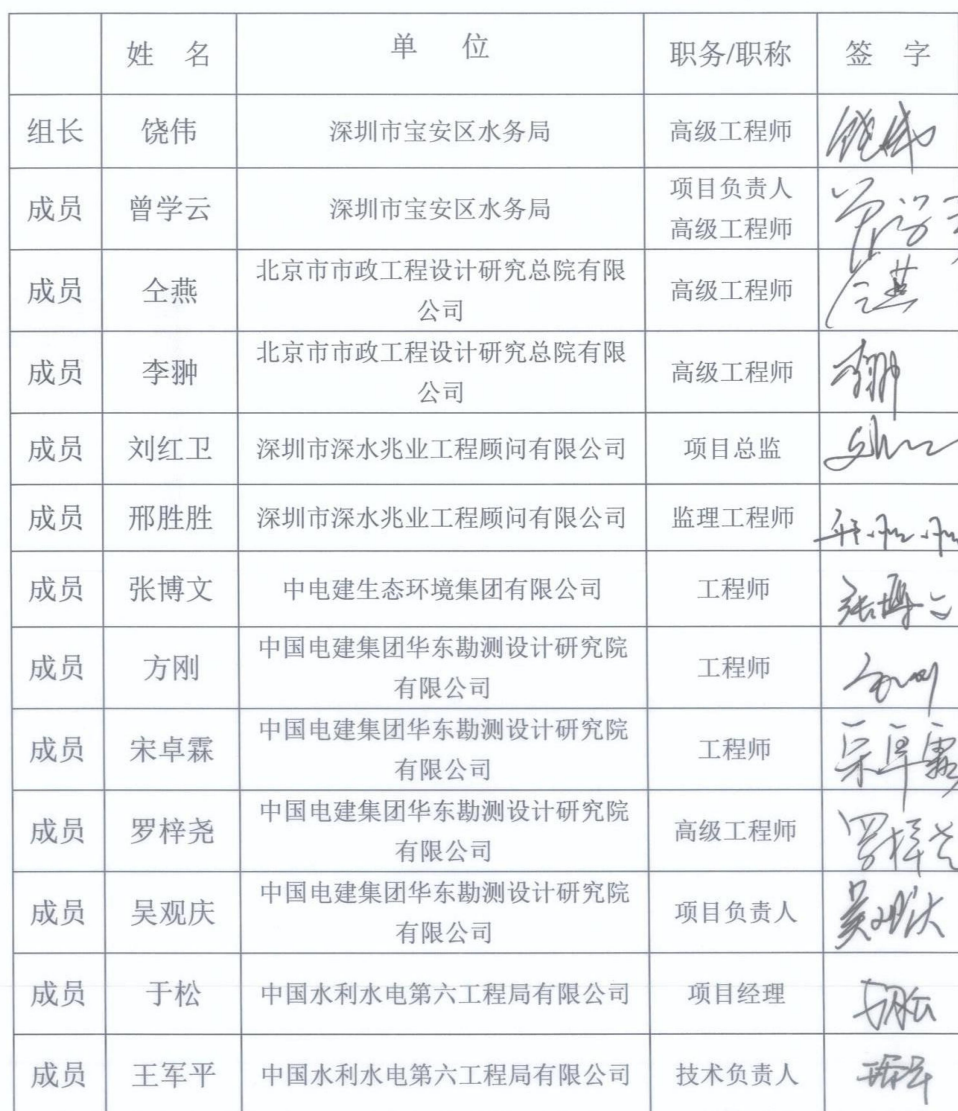 姓 名 单 位 职务/职称 签 字
组长 饶伟 深圳市宝安区水务局 高级工程师 饶伟
成员 曾学云 深圳市宝安区水务局 项目负责人
高级工程师 曾学云
成员 仝燕 北京市市政工程设计研究总院有限
公司 高级工程师 仝燕
成员 李翀 北京市市政工程设计研究总院有限
公司 高级工程师 李翀
成员 刘红卫 深圳市深水兆业工程顾问有限公司 项目总监
成员 邢胜胜 深圳市深水兆业工程顾问有限公司 监理工程师 邢胜胜
成员 张博文 中电建生态环境集团有限公司 工程师 张博文
成员 方刚 中国电建集团华东勘测设计研究院
有限公司 工程师 方刚
成员 宋卓霖 中国电建集团华东勘测设计研究院
有限公司 工程师 宋卓霖
成员 罗梓尧 中国电建集团华东勘测设计研究院
有限公司 高级工程师 罗梓尧
成员 吴观庆 中国电建集团华东勘测设计研究院
有限公司 项目负责人 吴观庆
成员 于松 中国水利水电第六工程局有限公司 项目经理
成员 王军平 中国水利水电第六工程局有限公司 技术负责人